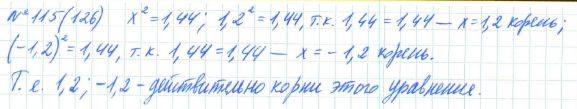 № 115(126) x² = 1,44; 1,2² = 1,44, т.к. 1,44 = 1,44 — x = 1,2 корень;
(-1,2)² = 1,44, т.к. 1,44 = 1,44 — x = -1,2 корень.
Т.е. 1,2; -1,2 - действительно корни этого уравнения.